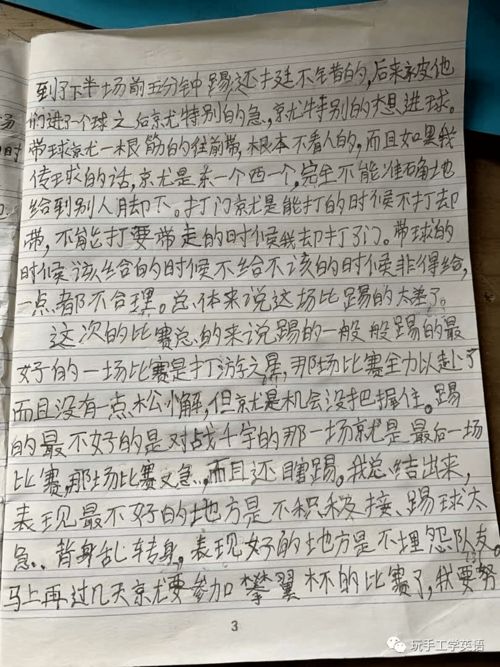 到了下半场前五分钟踢还打还不错的,后来被他
们进了个球之后就特别的急,就特别的想进球。
带球就一根筋的往前带,根本不看人的,而且如果我
传球的话,就是东一个西一个,完全不能准确地
给到别人脚下。打门就是能打的时候不打却
带,不能打要带走的时候我却打了门。带球的
时候该给的时候不给不该的时候非得给,
一点都不合理。总体来说这场比踢的太差了。
这次的比赛总的来说踢的一般般踢的最
好的一场比赛是打海之星,那场比赛全力以赴了
而且没有一点松懈,但就是机会没把握住。踢
的最不好的是对战千宇的那一场就是最后一场
比赛,那场比赛又急,而且还瞎踢。我总结出来,
表现最不好的地方是不积极接、踢球太
急、背身乱转身,表现好的地方是不埋怨队友。
马上再过几天就要参加攀翼杯的比赛了,我要努
3
玩手工学英语